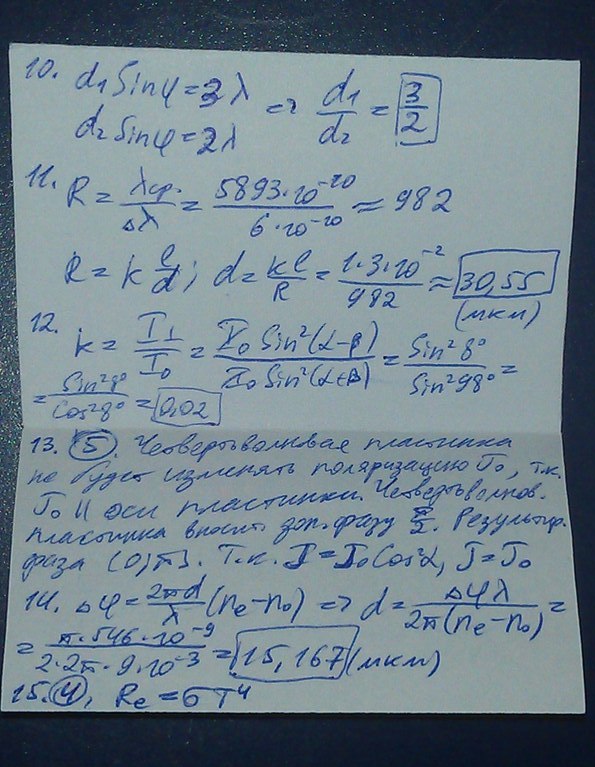 10. d₁ Sinφ = 3λ => d₁/d₂ = 3/2
d₂ Sinφ = 2λ
11. R = λср./Δλ = 5893·10⁻¹⁰/6·10⁻¹⁰ ≈ 982
R = k l/d; d = kl/R = 1·3·10⁻²/982 ≈ 30,55
(мкм)
12. k = I₁/I₀ = I₀ Sin²(α-β)/I₀ Sin²(α+β) = Sin²8°/Sin²98° =
= Sin²8°/Cos²8° = 0,02
13. 5. Четвертьволновая пластинка
не будет изменять поляризацию J₀, т.к.
J₀ || оси пластинки. Четвертьволнов.
пластинка вносит доп. фазу π/2. Результир.
фаза (0; π). Т.к. I = I₀Cos²α, J = J₀
14. Δφ = 2πd/λ (nₑ-n₀) => d = Δφλ/2π(nₑ-n₀) =
= π·546·10⁻⁹/2·2π·9·10⁻³ = 15,167 (мкм)
15. 4. Rₑ = σT⁴